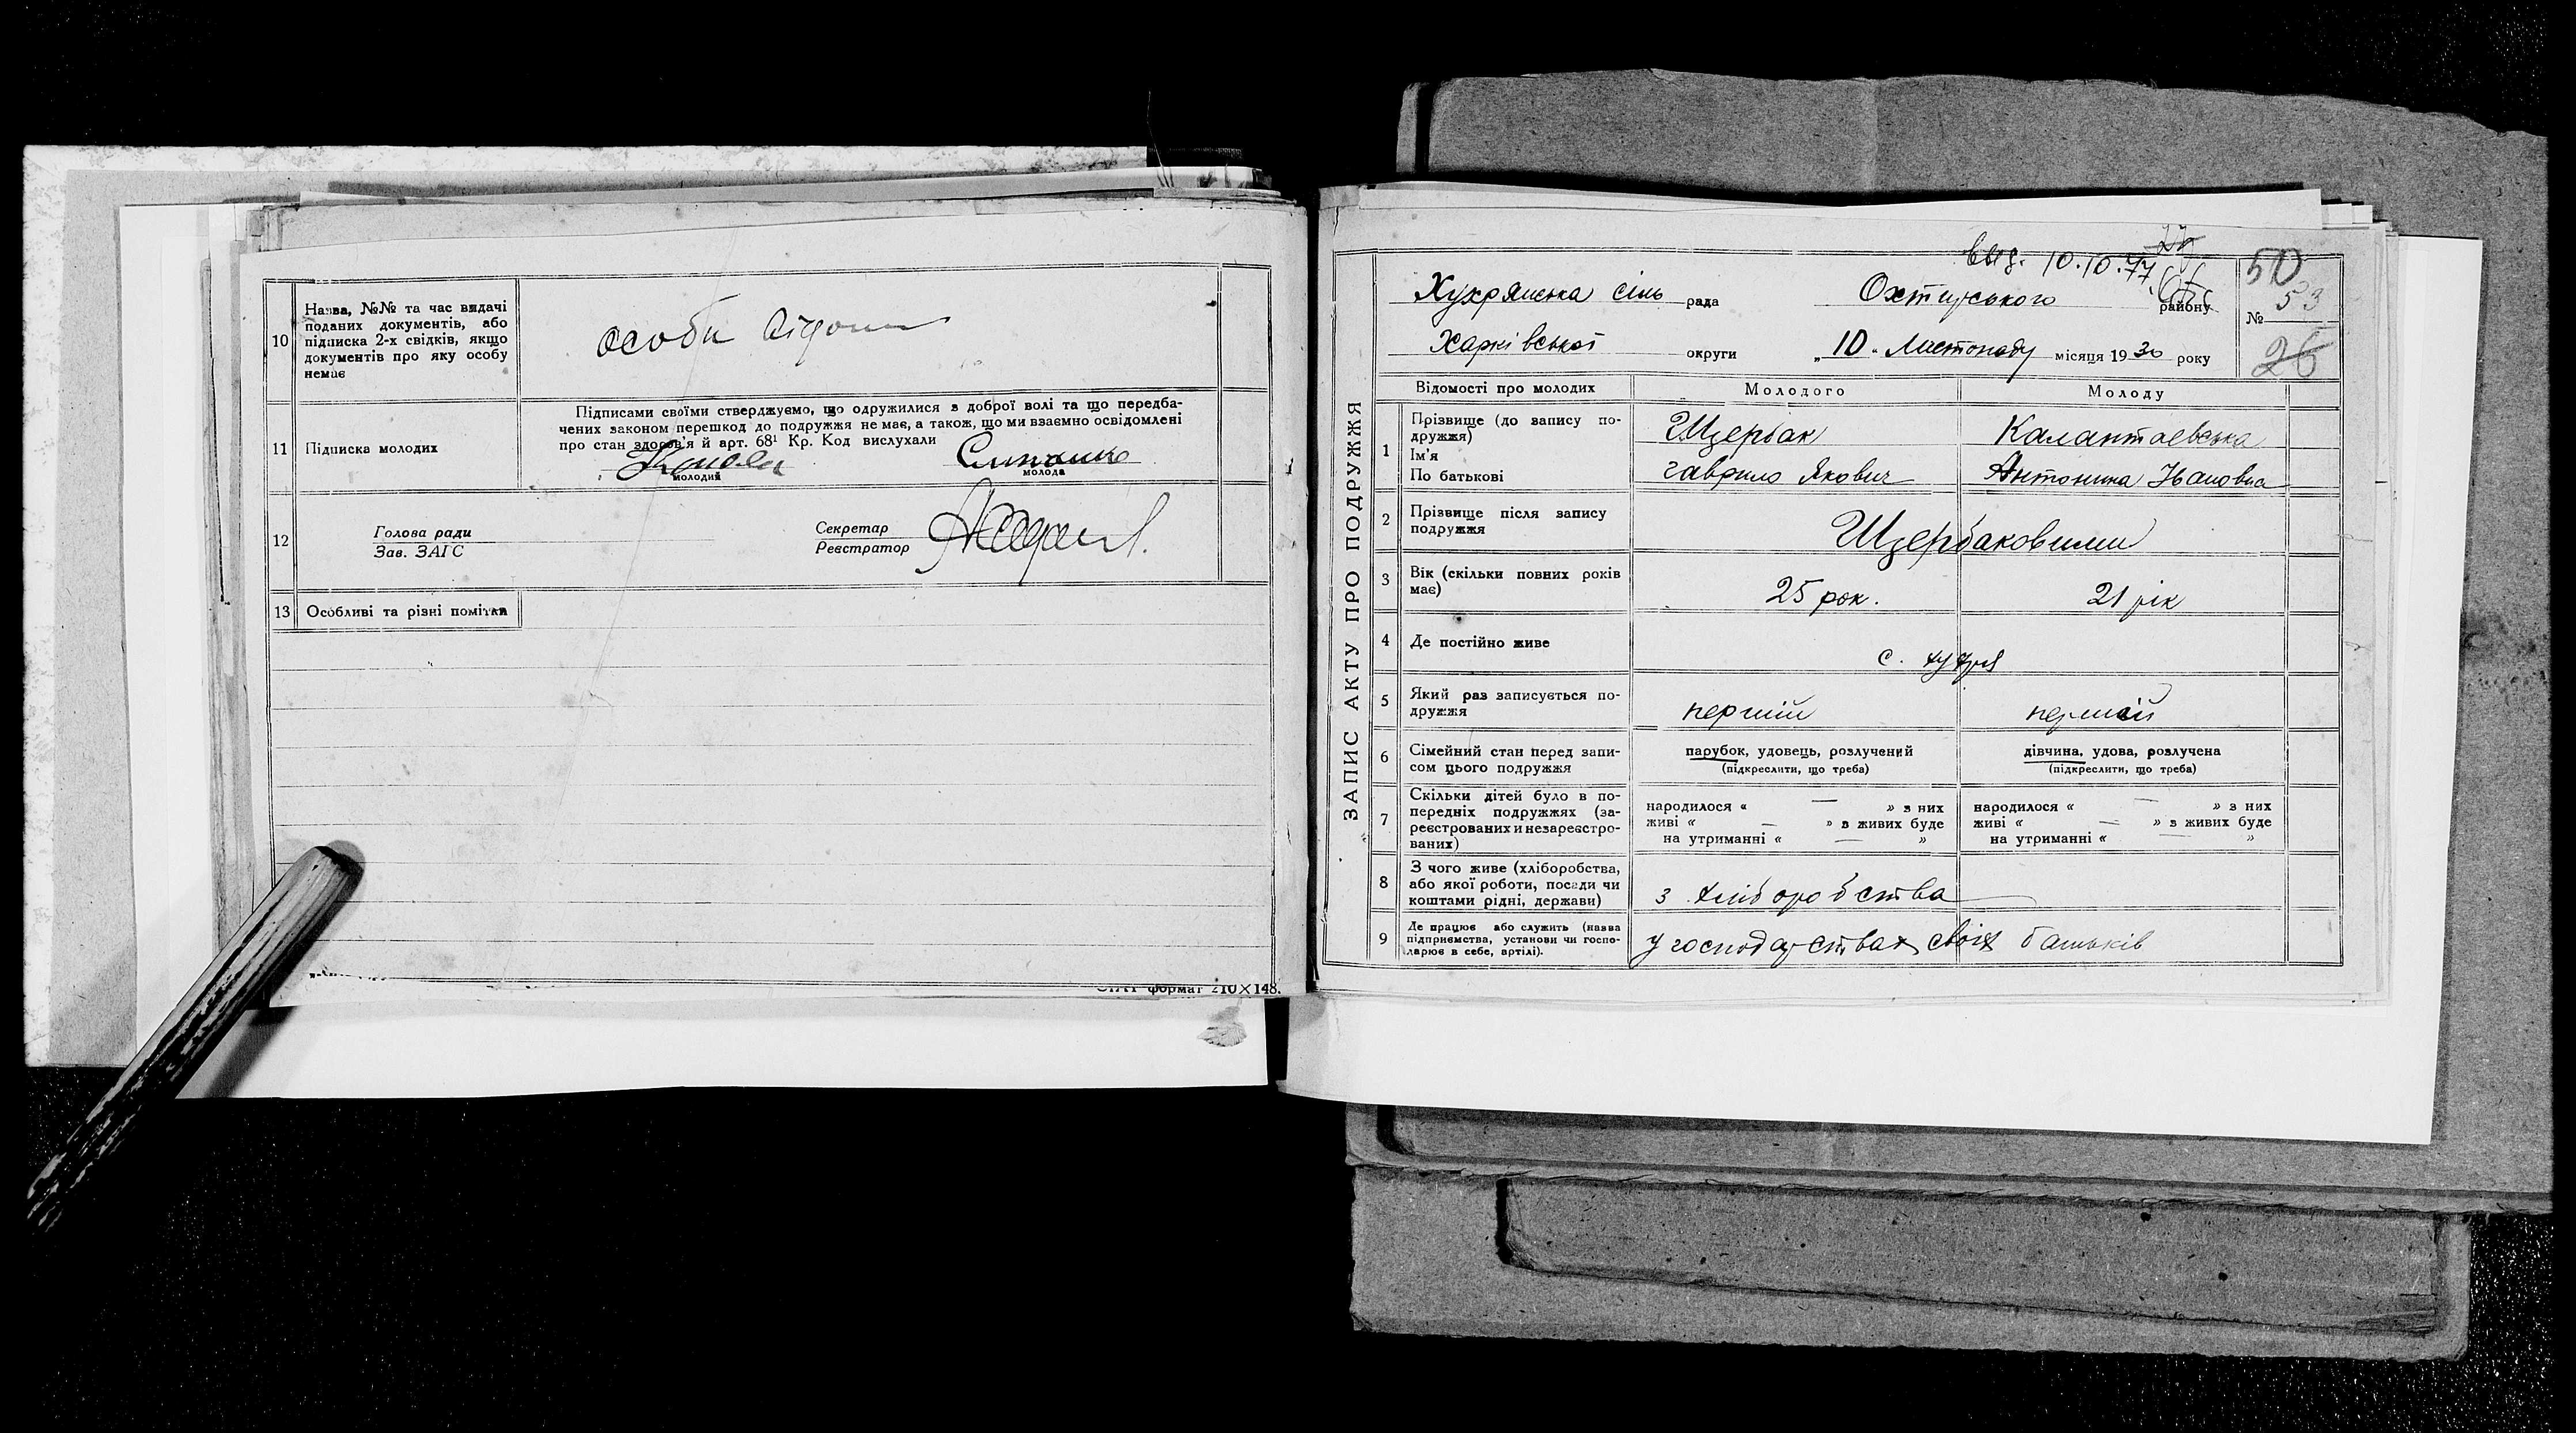 10
Назва, №№ та час видачі
поданих документів, або
підписка 2-х свідків, якщо
документів про яку особу
немає
особи відомі
11
Підписка молодих
Підписами своїми стверджуємо, що одружилися з доброї волі та що передба-
чених законом перешкод до подружжя не має, а також, що ми взаємно освідомлені
про стан здоров'я й арт. 68¹ Кр. Код вислухали
молодий
молода
12
Голова ради
Зав. ЗАГС
Секретар
Реєстратор
13
Особливі та різні помітки
формат 210×148.
ЗАПИС АКТУ ПРО ПОДРУЖЖЯ
выд. 10.10.77
Хухрянська сіль рада
Охтирського району
50
№ 53
26
Харківської округи
„10“ Листопаду місяця 1930 року
Відомості про молодих
Молодого
Молоду
1
Прізвище (до запису по-
дружжя)
Ім'я
По батькові
Щербак
Гаврило Якович
Калантаєвська
Антонина Івановна
2
Прізвище після запису
подружжя
Щербаковими
3
Вік (скільки повних років
має)
25 рок.
21 рік
4
Де постійно живе
с. Хухря
5
Який раз записується по-
дружжя
перший
перший
6
Сімейний стан перед запи-
сом цього подружжя
парубок, удовець, розлучений
(підкреслити, що треба)
дівчина, удова, розлучена
(підкреслити, що треба)
7
Скільки дітей було в по-
передніх подружжях (за-
реєстрованих и незареєстро-
ваних)
народилося « — » з них
живі « — » з живих буде
на утриманні « — »
народилося « — » з них
живі « — » з живих буде
на утриманні « — »
8
З чого живе (хліборобства,
або якої роботи, посади чи
коштами рідні, держави)
з хліборобства
9
Де працює або служить (назва
підприємства, установи чи госпо-
дарює в себе, артілі).
у господарствах своїх батьків